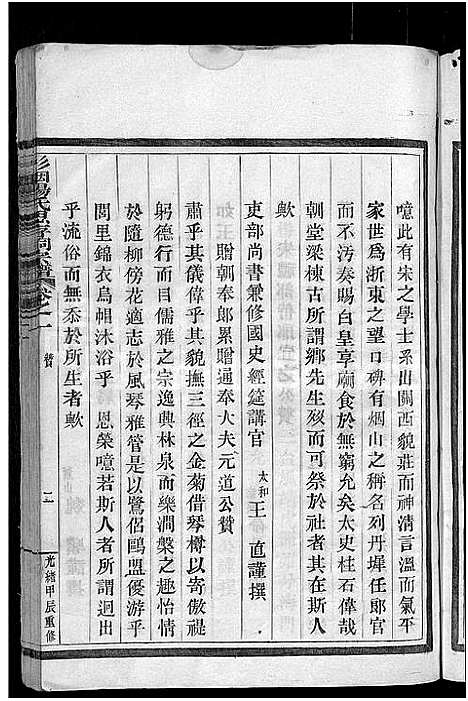 噫此有宋之學士系出關西貌莊而神清言溫而氣平
家世爲浙東之望口碑有烟山之稱名列丹墀任郎官
而不汚奏賜白皇享廟食於無窮允矣太史柱石偉哉
朝堂梁棟古所謂鄉先生歿而可祭於社者其在斯人
歟
吏部尚書兼修國史經筵講官 太和 王 直謹撰
贈朝奉郎累贈通奉大夫元道公贊
肅乎其儀偉乎其貌撫三徑之金菊借琴樽以寄傲禔
躬德行而目儒雅之宗逸興林泉而樂澗槃之趣怡情
於隨柳傍花適志於風琴雅管是以鷺侶鷗盟優游乎
閭里錦衣烏帽沐浴乎 恩榮噫若斯人者所謂迥出
乎流俗而無忝於所生者歟
卷之一
贊
光緒甲辰重修